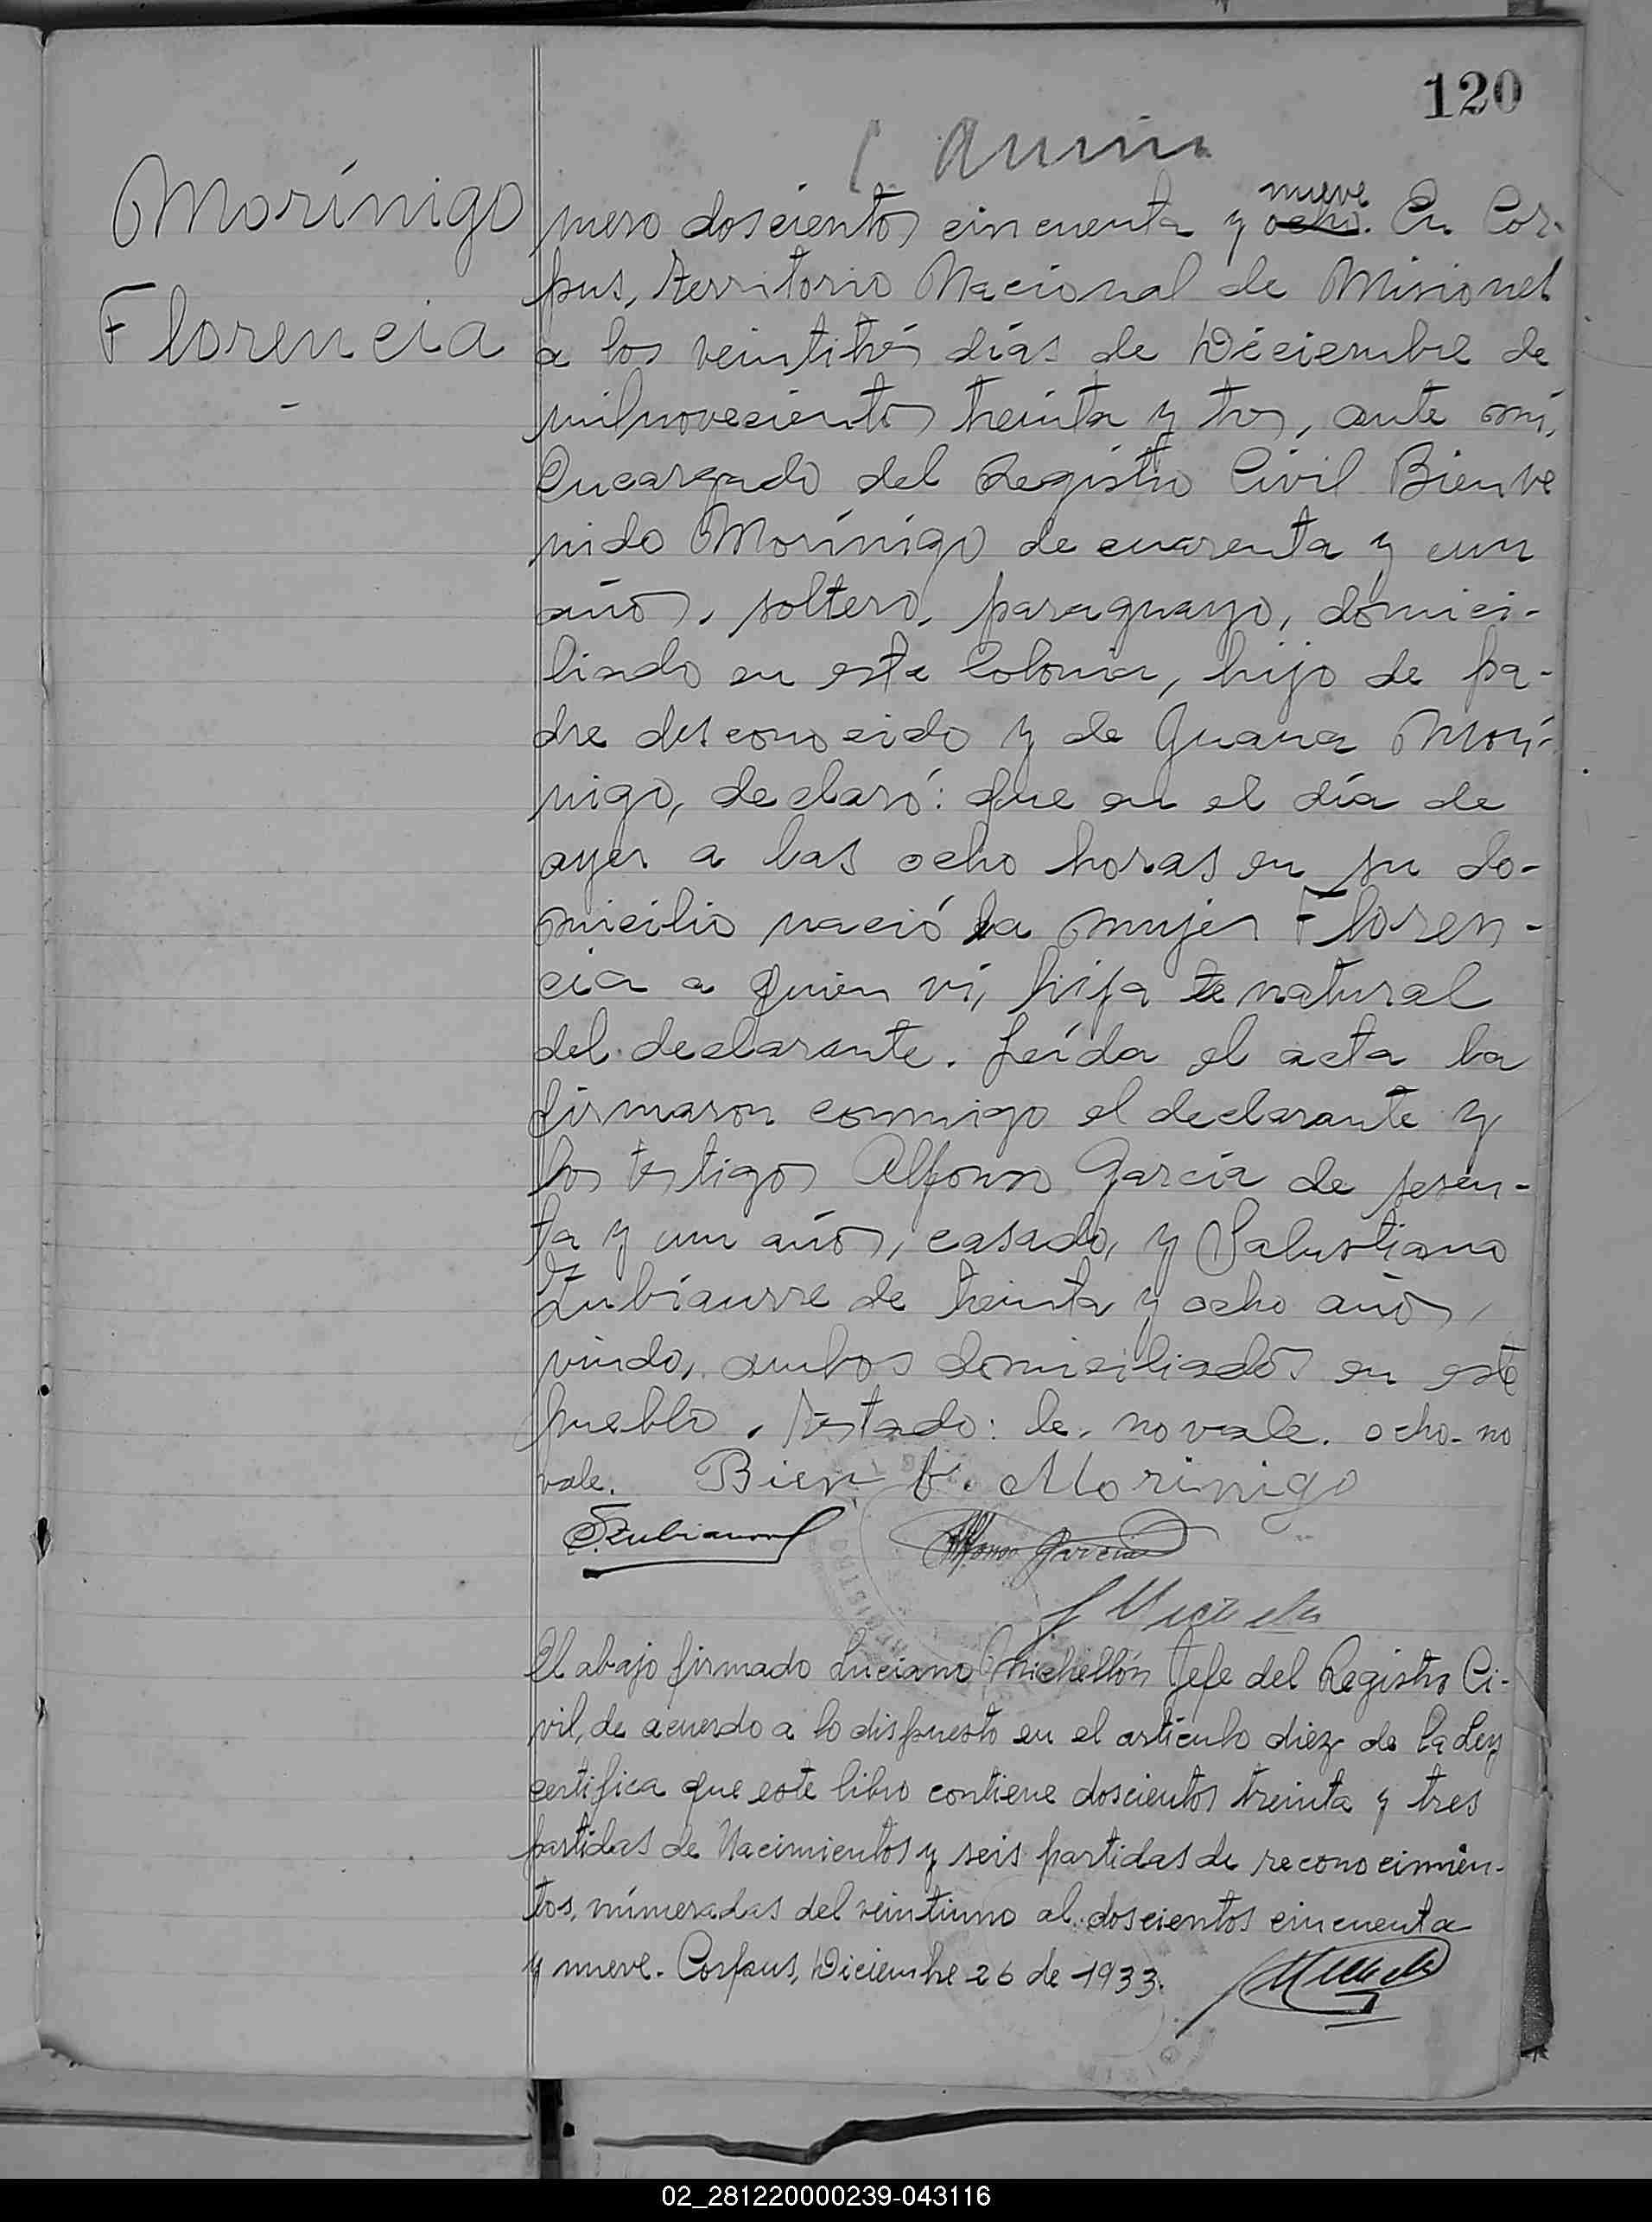 120
Morínigo
Florencia
mero doscientos cincuenta y ocho nueve. En Cor-
pus, territorio Nacional de Misiones
a los veintitrés días de Diciembre de
milnovecientos treinta y tres, ante mí,
Encargado del Registro Civil Bienve
nido Morínigo de cuarenta y un
años, soltero, paraguayo, domici-
liado en esta Colonia, hijo de pa-
dre desconocido y de Juana Morí-
nigo, declaró: que en el día de
ayer a las ocho horas en su do-
micilio nació la mujer Floren-
cia a quien ví, hija le natural
del declarante. Leída el acta la
firmaron conmigo el declarante y
los testigos Alfonso García de sesen-
ta y un años, casado, y Salustiano
Zubiaurre de treinta y ocho años,
viudo, ambos domiciliados en este
pueblo. Testado: le, no vale. ocho- no
vale. Bien v. Morinigo
S. Zubiaurre Alfonso Garcia
El abajo firmado Luciano Michellón Jefe del Registro Ci-
vil, de acuerdo a lo dispuesto en el artículo diez de la Ley
certifica que este libro contiene doscientos treinta y tres
partidas de Nacimientos y seis partidas de reconocimien-
tos, númeradas del veintiuno al doscientos cincuenta
y nueve. Corpus, Diciembre 26 de 1933.
02_281220000239-043116